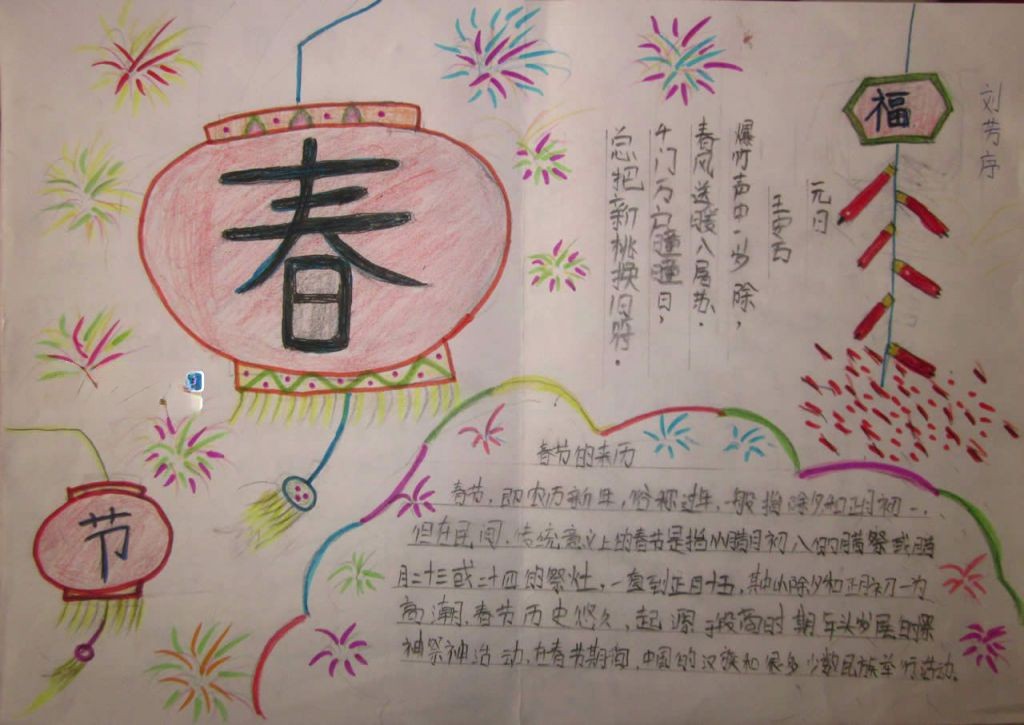 春
节
福
刘芳序
元日
王安石
爆竹声中一岁除，
春风送暖入屠苏．
千门万户瞳瞳日，
总把新桃换旧符．
春节的来历
春节，即农历新年，俗称过年，一般指除夕和正月初一，
但在民间，传统意义上的春节是指从腊月初八的腊祭或腊
月二十三或二十四的祭灶，一直到正月十五，其中以除夕和正月初一为
高潮．春节历史悠久，起源于殷商时期年头岁尾的祭
神祭神活动．在春节期间，中国的汉族和很多少数民族举行活动．